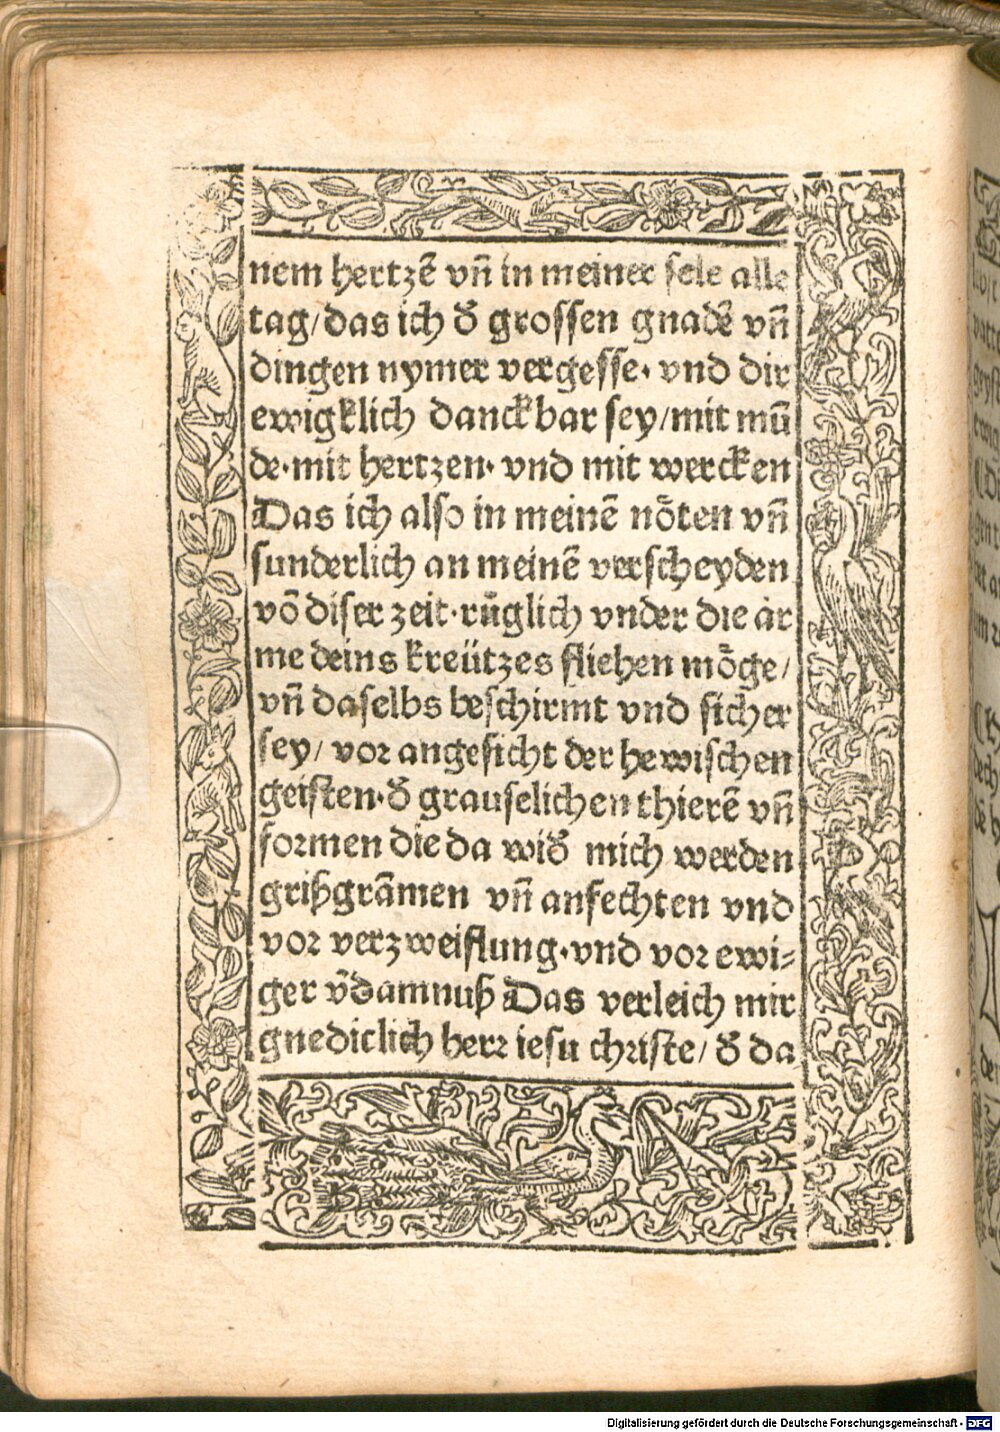 nem hertzē vn̄ in meiner sele alle
tag/das ich d̄ grossen gnadē vn̄
dingen nymer vergesse· vnd dir
ewigklich danckbar sey/mit mū
de·mit hertzen· vnd mit wercken
Das ich also in meinē nöten vn̄
sunderlich an meinē verscheyden
vō diser zeit·rüglich vnder die ar
me deins kreützes fliehen möge/
vn̄ daselbs beschirmt vnd sicher
sey/ vor angesicht der hewischen
geisten·d̄ grauselichen thierē vn̄
formen die da wid̄ mich werden
grißgrāmen vn̄ anfechten vnd
vor verzweiflung·vnd vor ewi⸗
ger v̄d̄amnuß Das verleich mir
gnediclich herr iesu christe/ d̄ da
Digitalisierung gefördert durch die Deutsche Forschungsgemeinschaft - DFG